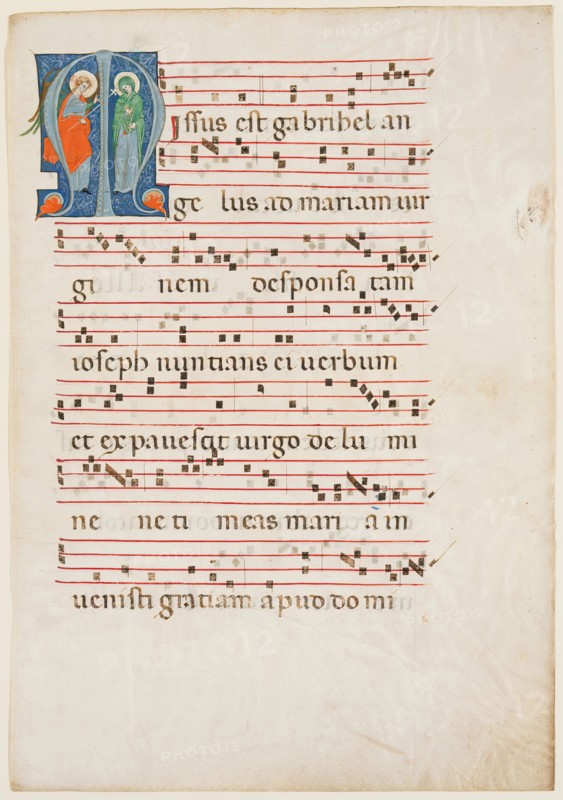 Missus est gabrihel an
ge lus ad mariam uir
gi nem desponsa tam
ioseph nuntians ei uerbum
et expauescit uirgo de lu mi
ne ne ti meas mari a in
uenisti gratiam apud do mi